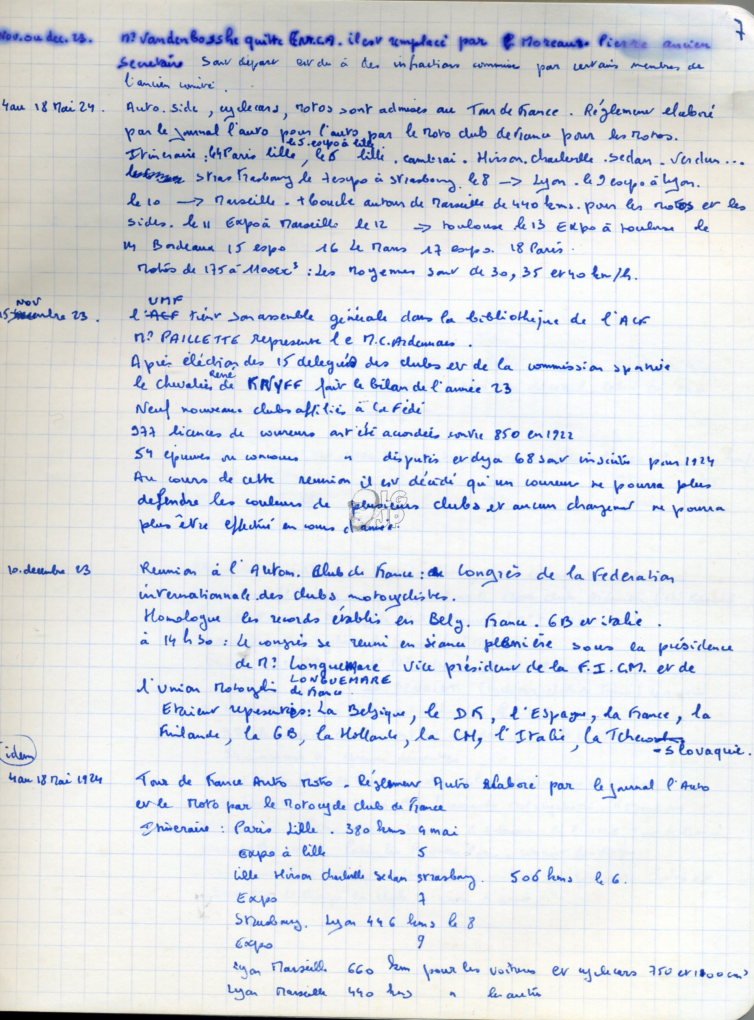 7
Nov. ou dec. 23. Mr Vandenbosshe quitte l' il est remplacé par Moreaux Pierre ancien
Secretaire Son départ est du à des infractions commise par certains membres de
l'ancien comité.
4 au 18 Mai 24. Auto. side, cyclecars, motos sont admises au Tour de France. Réglement elaboré
par le journal l'auto pour l'auto, par le Moto club de France pour les motos.
le 5. expo à lille
Itineraire: le 4 Paris lille, le 6 lille. cambrai. Hirson. charleville. Sedan. Verdun...
Strasbourg le 7 expo à Strasbourg. le 8 → Lyon. le 9 expo à Lyon.
le 10 → Marseille. + boucle autour de Marseille de 440 kms. pour les motos et les
sides. le 11 Expo à Marseille le 12 → toulouse le 13 Expo à toulouse le
14 Bordeaux 15 expo 16 le Mans 17 expo. 18 Paris.
Motos de 175 à 1100 cm3 : les moyennes sont de 30, 35 et 40 km/h.
NOV UMF
15 23. l'ACF tient son assemblé générale dans la bibliothèque de l'ACF
Mr PAILLETTE represente le M.C. Ardennais.
Après éléction des 15 delegués des clubs et de la commission sportive
René
le chevalier de KNYFF fait le bilan de l'année 23
Neuf nouveaux clubs affiliés à la Fédé
977 licences de coureurs ont été accordées contre 850 en 1922
54 épreuves ou concours " disputés et deja 68 sont inscrites pour 1924
Au cours de cette reunion il est décidé qu'un coureur ne pourra plus
defendre les couleurs de plusieurs clubs et aucun changement ne pourra
plus être effectué en cours d'année
10. decembre 23 Reunion à l'Autom. Club de France: Congrès de la Federation
internationnale des clubs motocyclistes.
Homologue les records établis en Belg. France. GB et italie.
à 14 h 30 : le congrès se reuni en séance plenière sous la présidence
de Mr Longuemare Vice président de la F.I.C.M. et de
LONGUEMARE
l'union Motocyclis de France.
Etaient representés: La Belgique, le DK, l'Espagne, la France, la
Finlande, la GB, la Hollande, la CH, l'Italie, la Tcheco
-slovaquie.
idem
4 au 18 Mai 1924 Tour de France Auto Moto. Réglement Auto elaboré par le journal l'Auto
et le Moto par le Motocycle club de France
Itineraire : Paris Lille. 380 kms 4 mai
Expo à lille 5
lille Hirson charleville Sedan Strasbourg. 506 kms le 6.
Expo 7
Strasbourg. Lyon 446 kms le 8
Expo 9
Lyon Marseille 660 km pour les voitures et cyclecars 750 et 1100 cm3
Lyon Marseille 440 kms " les autres